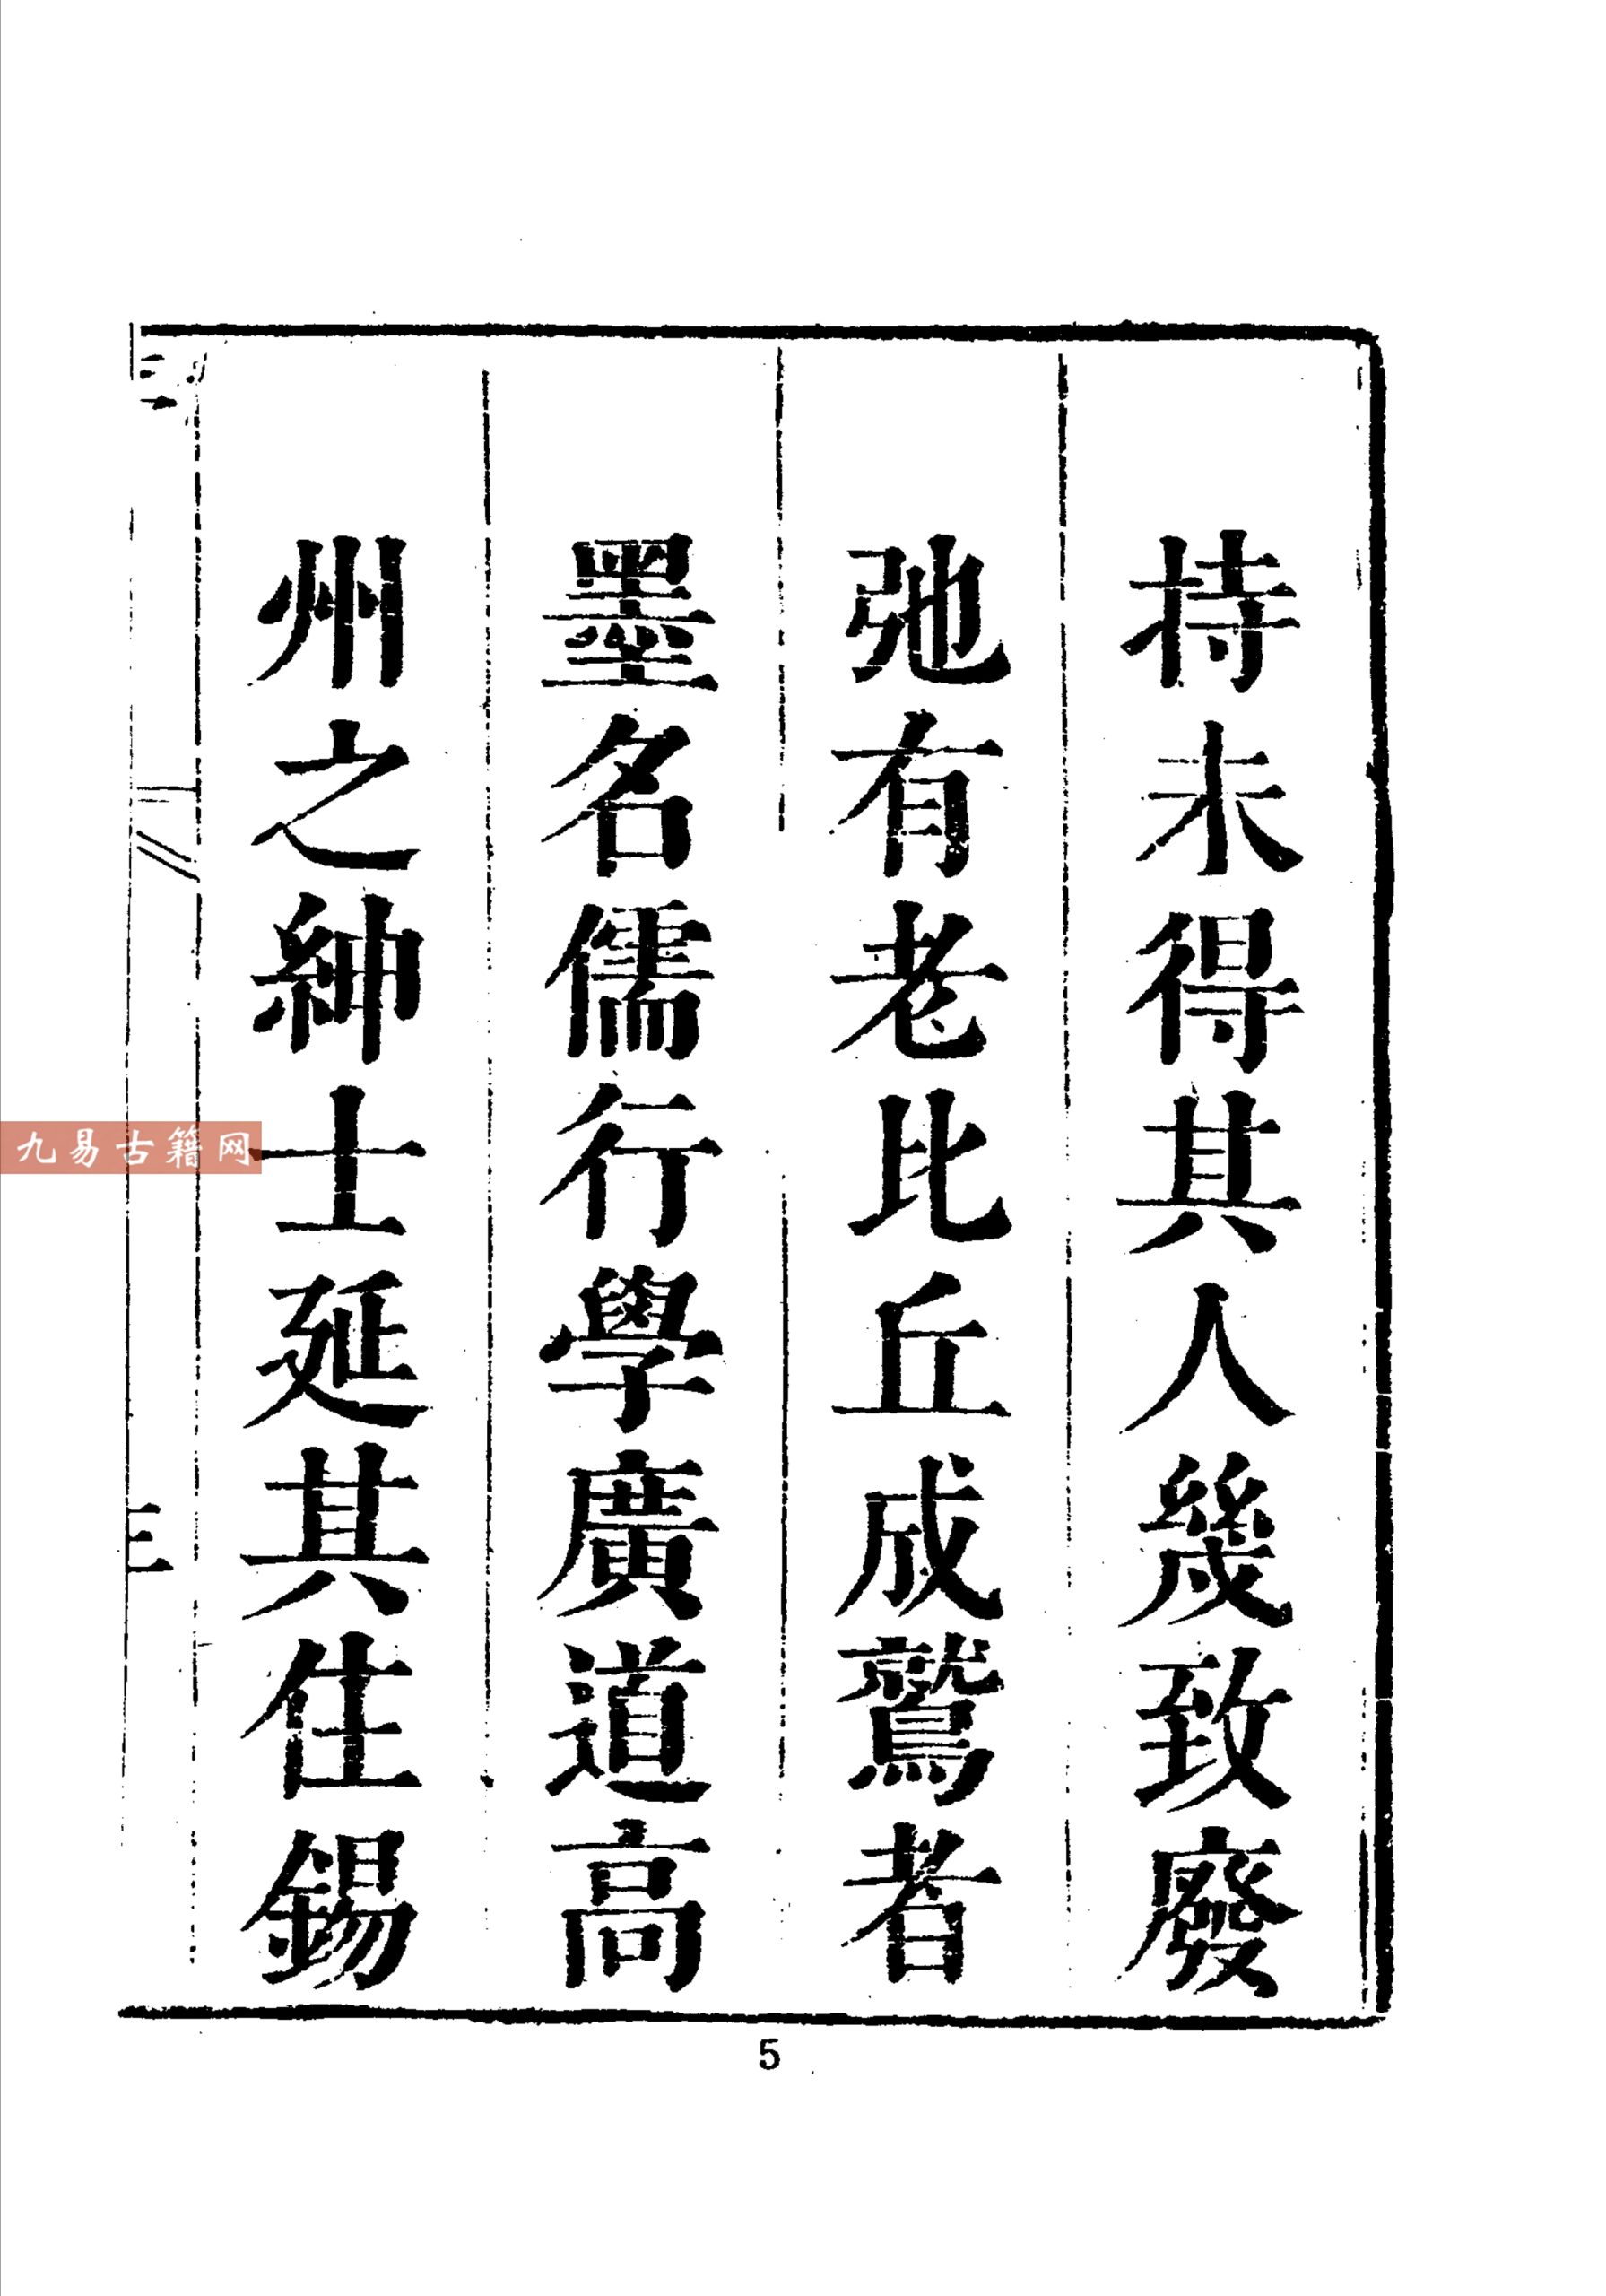 持未得其人幾致廢
弛有老比丘成鷲者
墨名儒行學廣道高
州之紳士延其住錫
三
九易古籍网
5